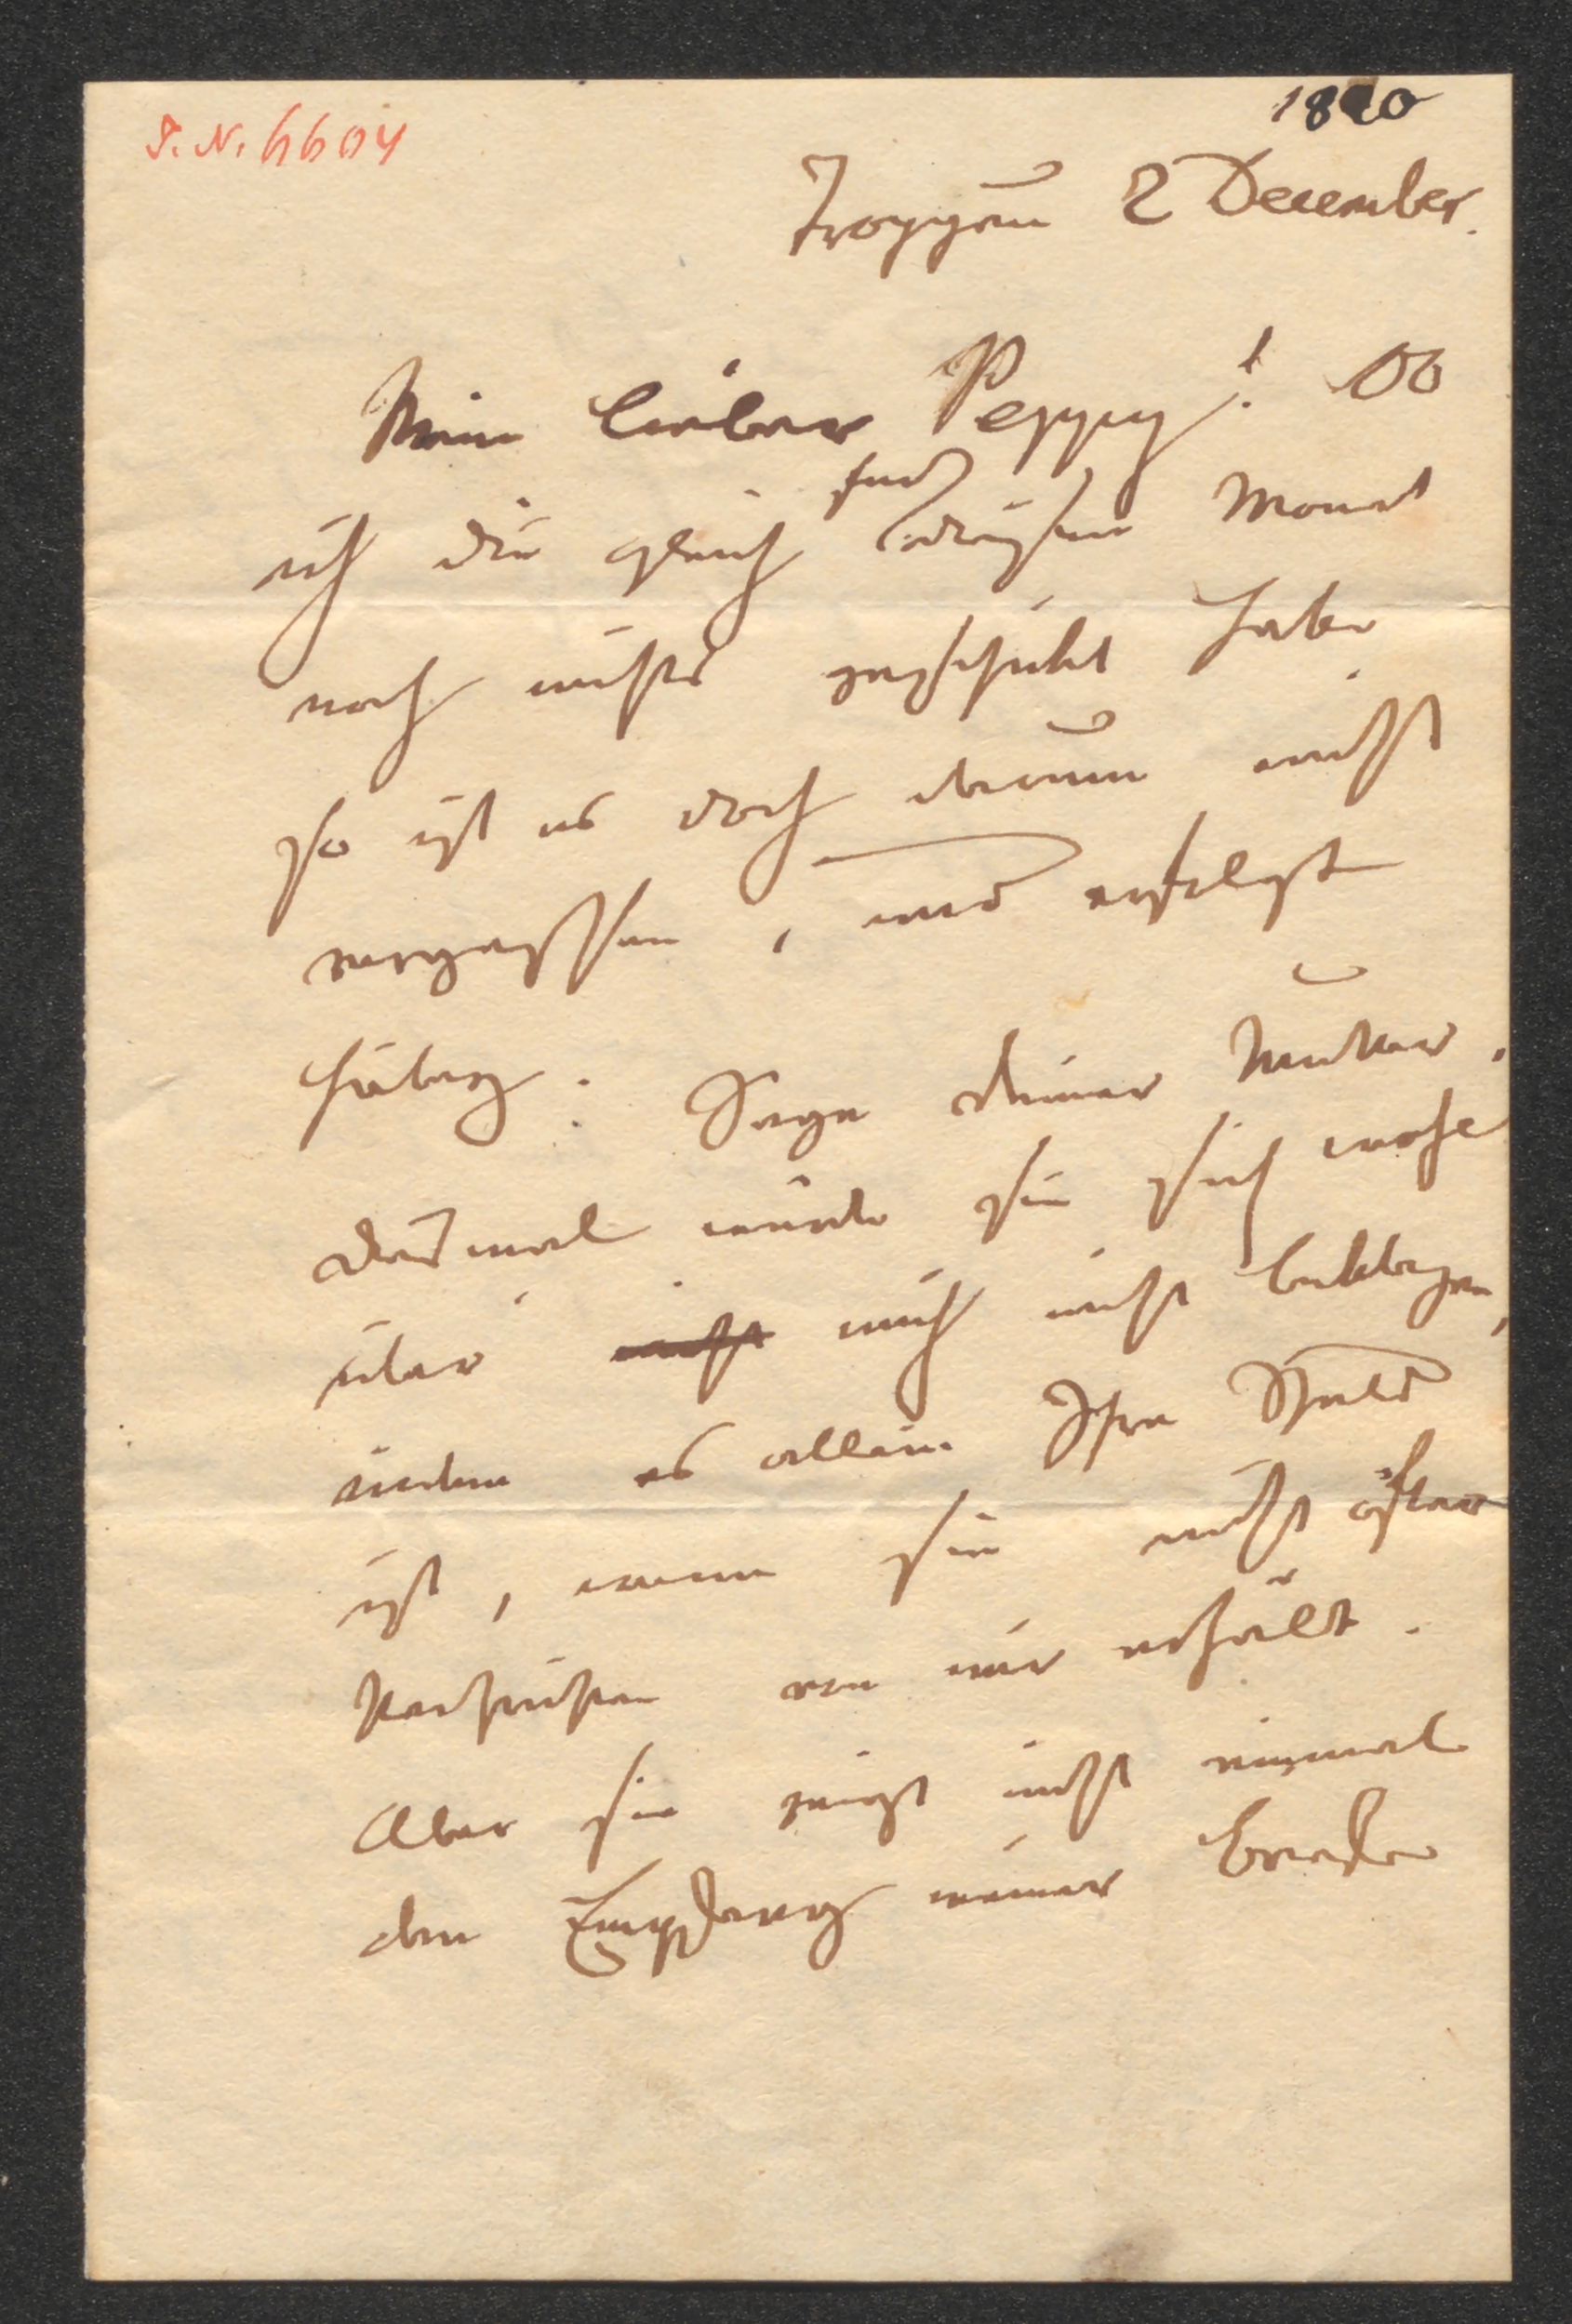 I. N. 6604
1820
Troppau 2 December.
Mein lieber Peppy! Ob
ich dir gleich für diesen Monat
noch nichts geschickt habe
so ist es doch darum nicht
vergessen, und erfolgt
hiebey: Sage deiner Mutter,
diesmal würde sie sich wohl
über nicht mich nicht beklagen,
indem es allein Ihre Schuld
ist, wenn sie nicht öfter
Nachrichten von mir erhält.
Aber sie zeigt nicht einmal
den Empfang meiner Briefe